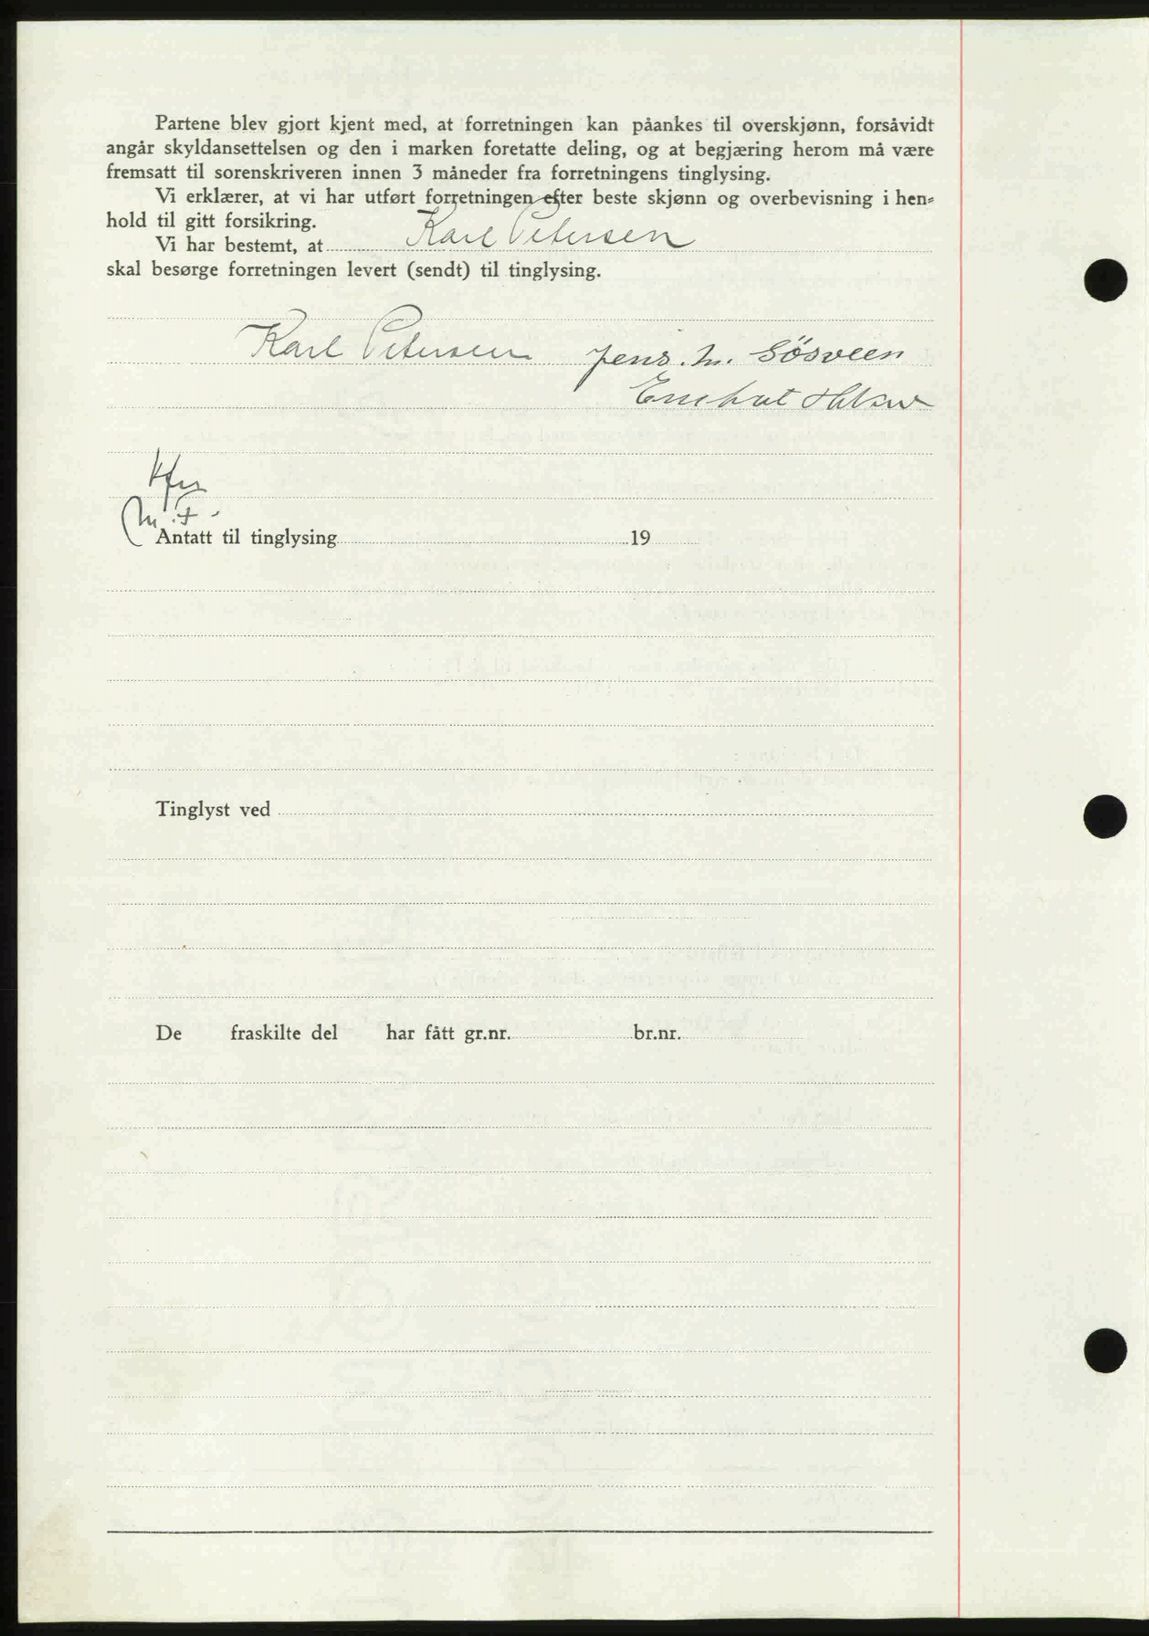 Partene blev gjort kjent med, at forretningen kan påankes til overskjønn, forsåvidt
angår skyldansettelsen og den i marken foretatte deling, og at begjæring herom må være
fremsatt til sorenskriveren innen 3 måneder fra forretningens tinglysing.
Vi erklærer, at vi har utført forretningen efter beste skjønn og overbevisning i hen-
hold til gitt forsikring.
Vi har bestemt, at Karl Petersen
skal besørge forretningen levert (sendt) til tinglysing.
Karl Petersen Jens. M. Søsveen
Antatt til tinglysing 19
Tinglyst ved
De fraskilte del har fått gr.nr. br.nr.